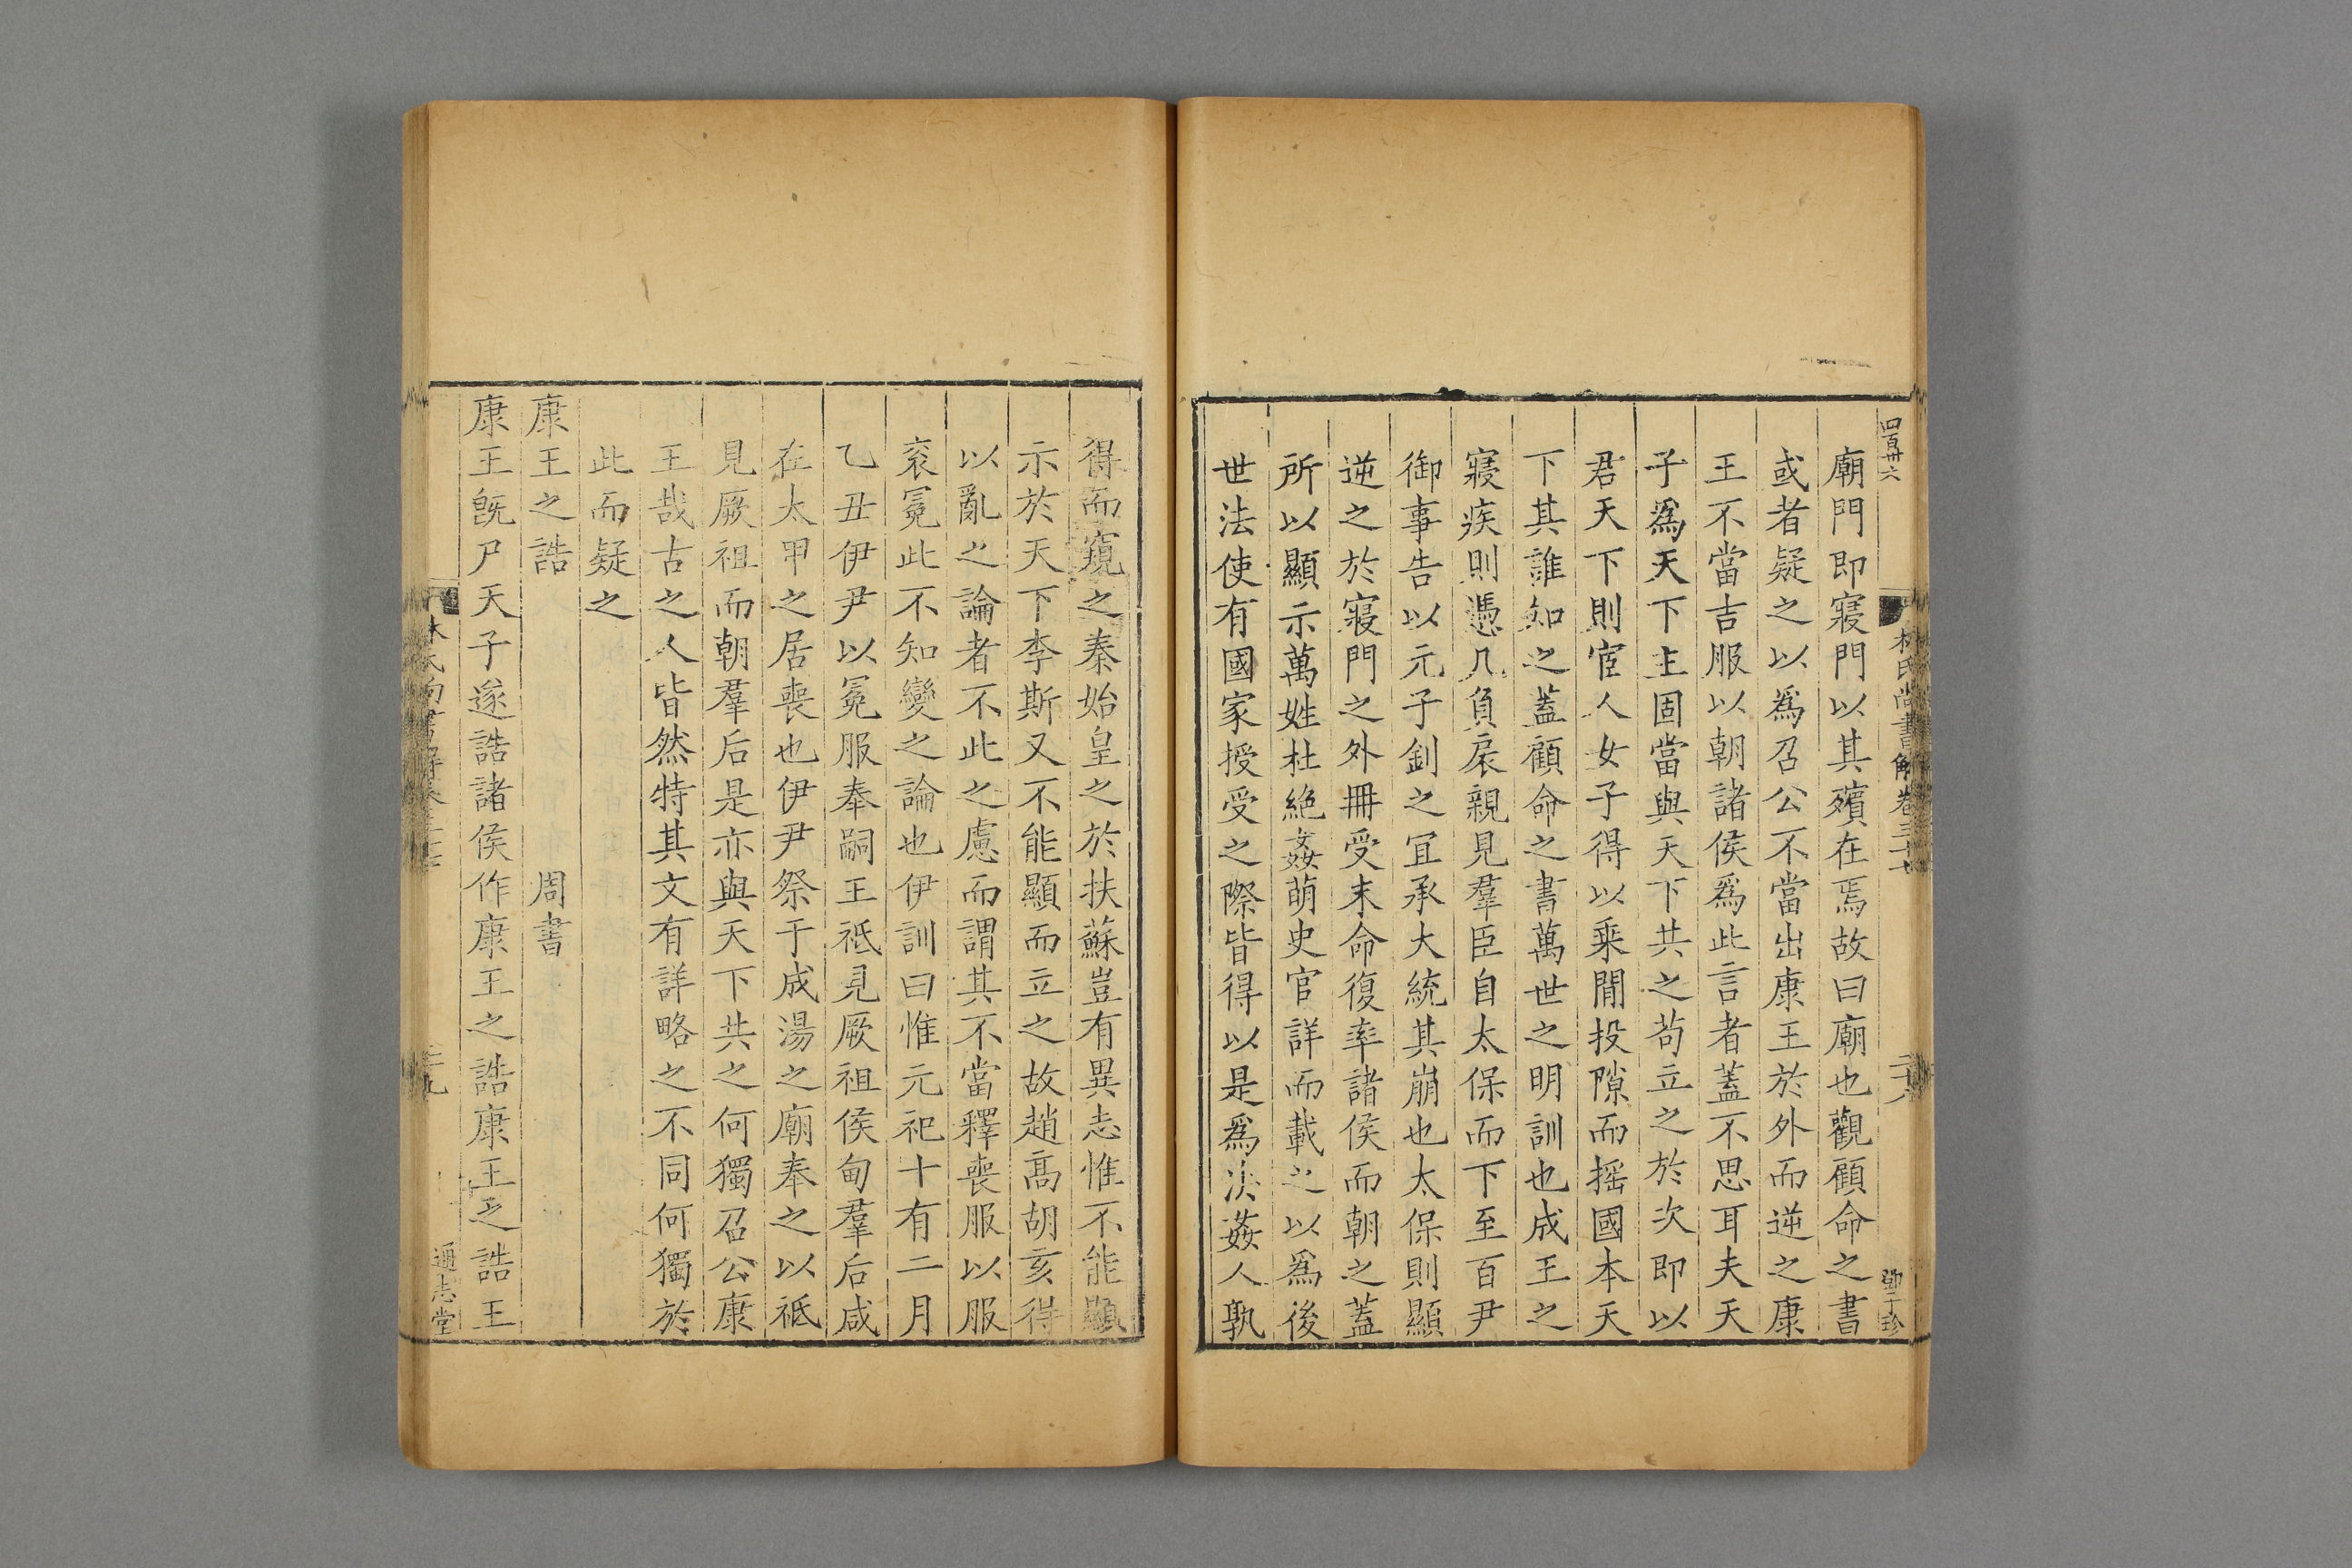 四百卅六
林氏尚書解卷三十七
二十八
廟門即寢門以其殯在焉故曰廟也觀顧命之書
或者疑之以爲召公不當出康王於外而逆之康
王不當吉服以朝諸侯爲此言者蓋不思耳夫天
子爲天下主固當與天下共之苟立之於次即以
君天下則宦人女子得以乘閒投隙而摇國本天
下其誰知之蓋顧命之書萬世之明訓也成王之
寢疾則憑几負扆親見羣臣自太保而下至百尹
御事告以元子釗之宜承大統其崩也太保則顯
逆之於寢門之外冊受末命復率諸侯而朝之蓋
所以顯示萬姓杜絶姦萌史官詳而載之以爲後
世法使有國家授受之際皆得以是爲決姦人孰
得而窺之秦始皇之於扶蘇豈有異志惟不能顯
示於天下李斯又不能顯而立之故趙高胡亥得
以亂之論者不此之慮而謂其不當釋喪服以服
衮冕此不知變之論也伊訓曰惟元祀十有二月
乙丑伊尹以冕服奉嗣王祗見厥祖侯甸羣后咸
在太甲之居喪也伊尹祭于成湯之廟奉之以祗
見厥祖而朝羣后是亦與天下共之何獨召公康
王哉古之人皆然特其文有詳略之不同何獨於
此而疑之
康王之誥　周書
康王旣尸天子遂誥諸侯作康王之誥康王之誥王
通志堂